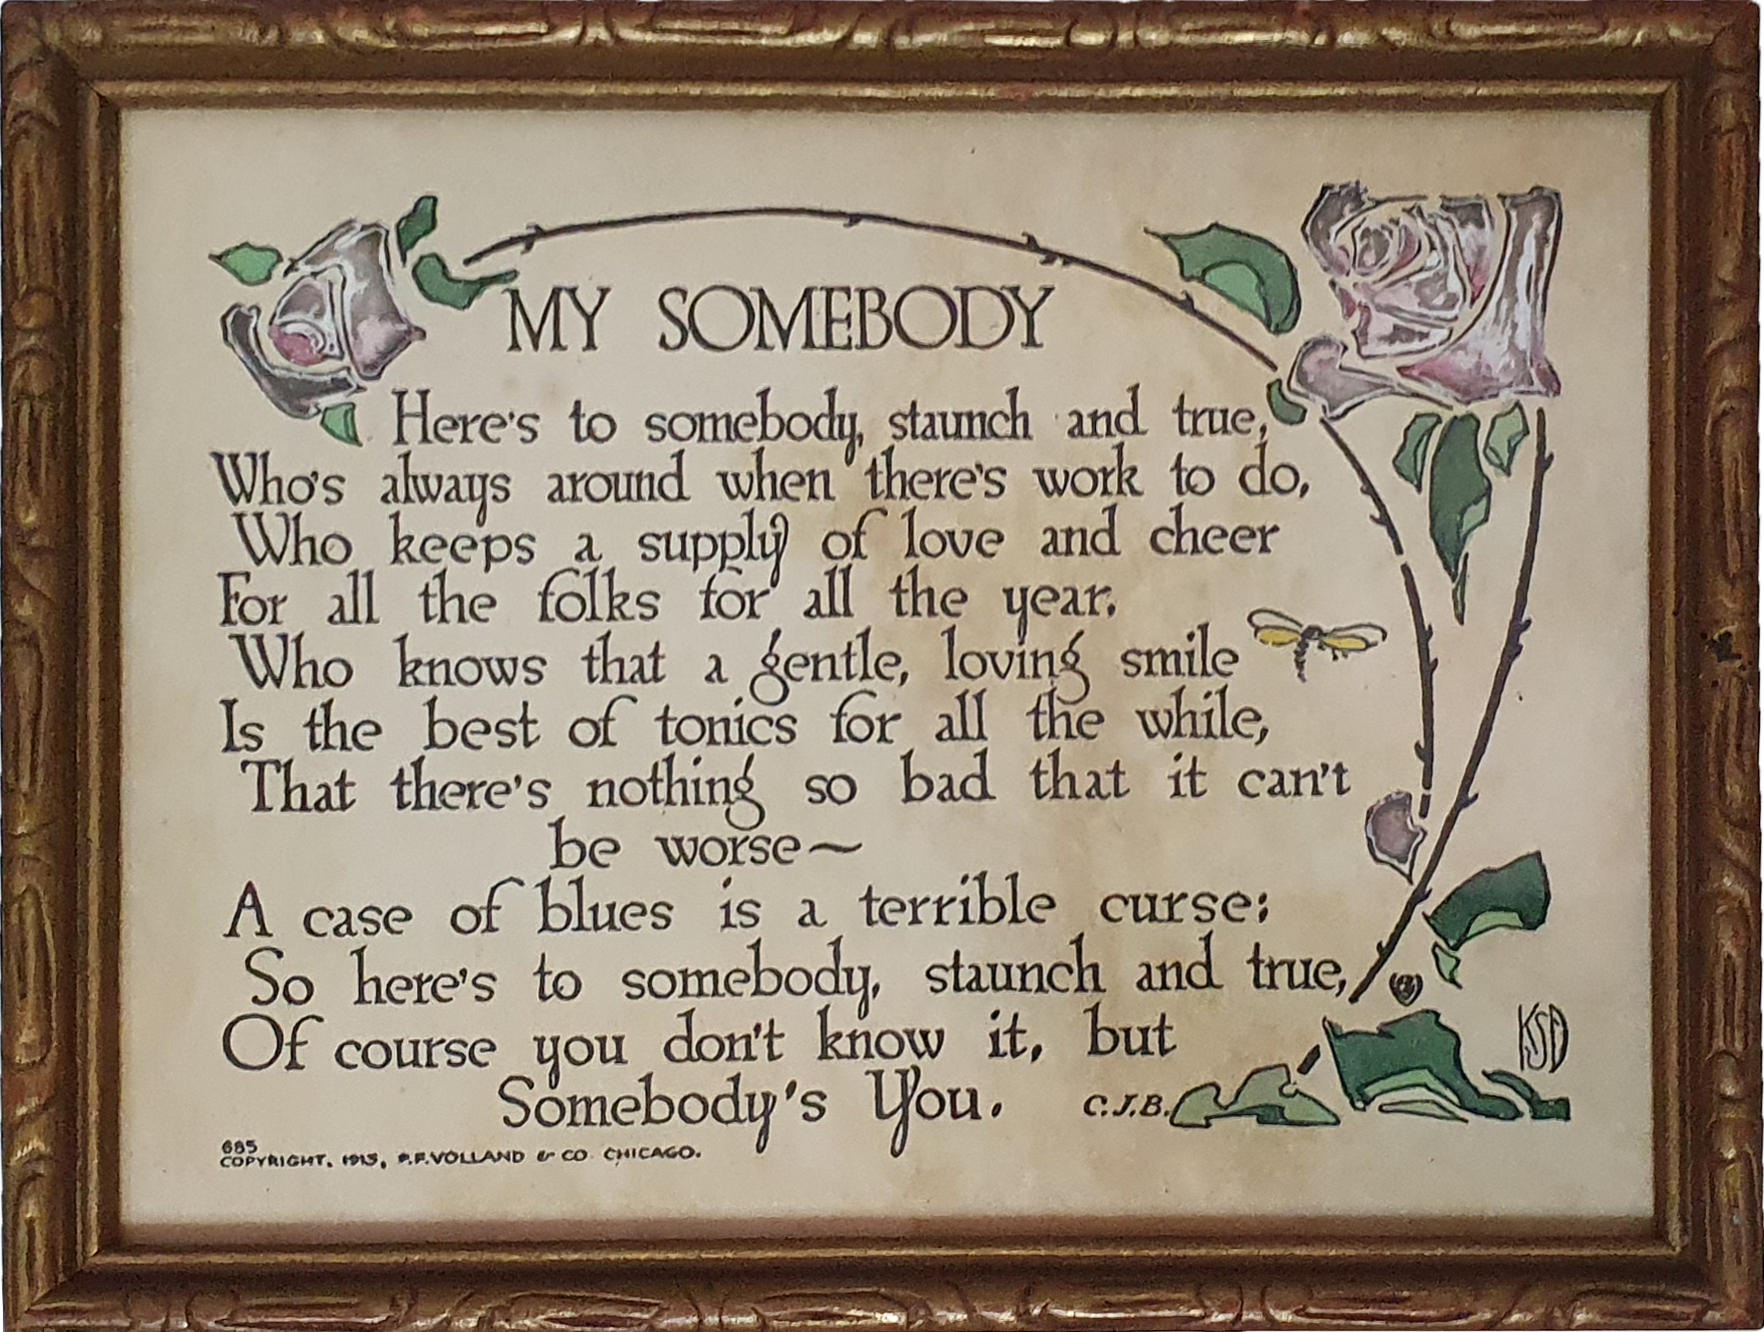 MY SOMEBODY
Here's to somebody, staunch and true,
Who's always around when there's work to do,
Who keeps a supply of love and cheer
For all the folks for all the year.
Who knows that a gentle, loving smile
Is the best of tonics for all the while,
That there's nothing so bad that it can't
be worse~
A case of blues is a terrible curse;
So here's to somebody, staunch and true,
Of course you don't know it, but
Somebody's You. C.J.B.
KSD
685
COPYRIGHT, 1913, P.F. VOLLAND & CO CHICAGO.